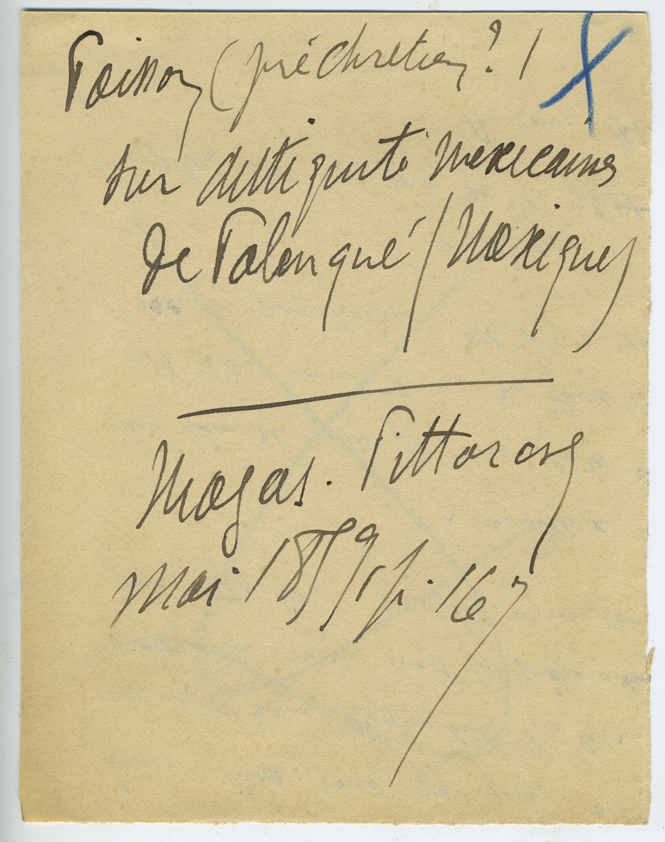 Poisson (préchretien ? )
sur antiquité mexicaines
de Palenqué (Mexique)
Magas. Pittoresq
mai 1859, p. 167